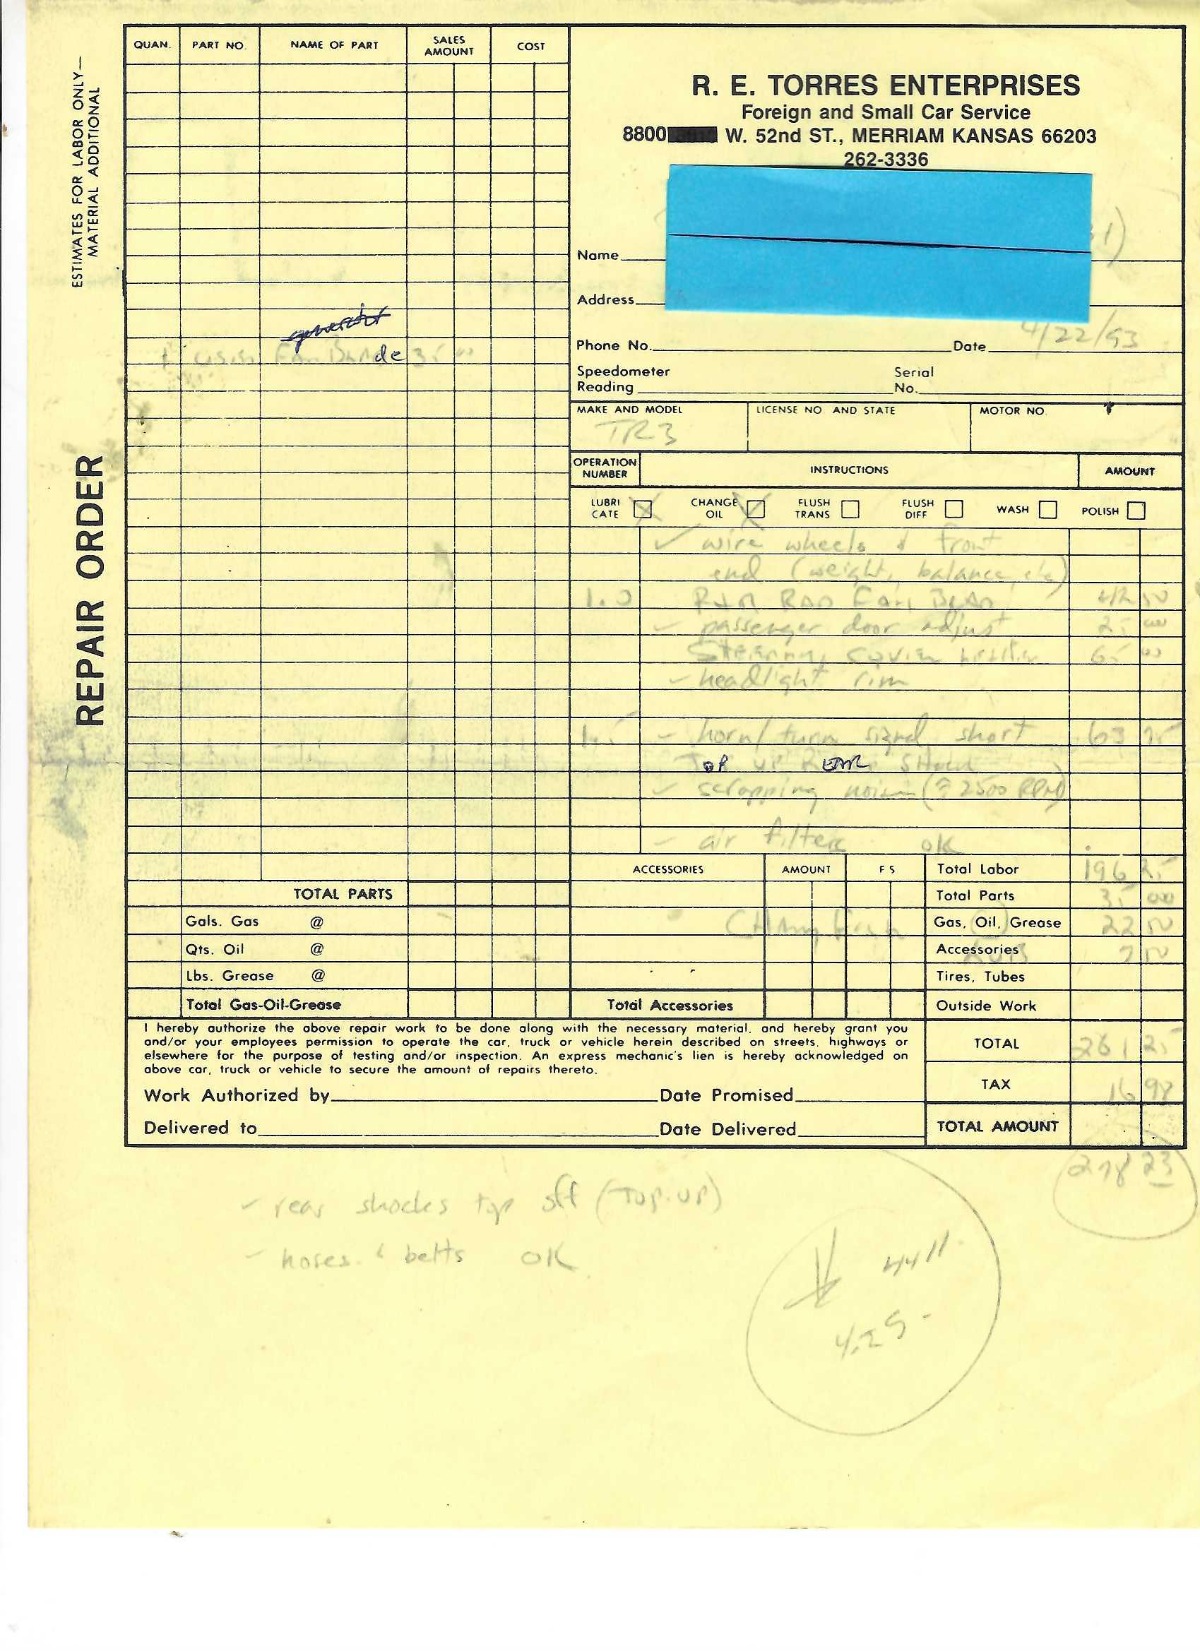 QUAN.
PART NO.
NAME OF PART
SALES AMOUNT
COST
ESTIMATES FOR LABOR ONLY—
MATERIAL ADDITIONAL
REPAIR ORDER
R. E. TORRES ENTERPRISES
Foreign and Small Car Service
8800 W. 52nd ST., MERRIAM KANSAS 66203
262-3336
Name
Address
4/22/93
Phone No.
Date
Speedometer
Reading
Serial
No.
generator
1 used Fan Blade 35 00
MAKE AND MODEL
LICENSE NO. AND STATE
MOTOR NO.
TR3
OPERATION NUMBER
INSTRUCTIONS
AMOUNT
LUBRI CATE
CHANGE OIL
FLUSH TRANS
FLUSH DIFF
WASH
POLISH
✓ wire wheels & front
end (weight, balance, etc)
1.0 R+R Rad Fan Blad 42 50
✓ passenger door adjust 25 00
Steering 65 00
✓ headlight rim
1.5 ✓ horn/turn signal short 63 75
Top up Rear Shock
✓ scrapping noise (@ 2500 RPM)
✓ air filter OK
ACCESSORIES
AMOUNT
F S
Total Labor 196 25
TOTAL PARTS
Total Parts 35 00
Gals. Gas @
Gas, Oil, Grease 22 50
Qts. Oil @
Accessories Lub 7 50
Lbs. Grease @
Tires, Tubes
Total Gas-Oil-Grease
Total Accessories
Outside Work
I hereby authorize the above repair work to be done along with the necessary material, and hereby grant you
and/or your employees permission to operate the car, truck or vehicle herein described on streets, highways or
elsewhere for the purpose of testing and/or inspection. An express mechanic's lien is hereby acknowledged on
above car, truck or vehicle to secure the amount of repairs thereto.
TOTAL 261 25
TAX 16 98
Work Authorized by
Date Promised
Delivered to
Date Delivered
TOTAL AMOUNT
278 23
✓ rear shocks top off (TOP-UP)
✓ hoses & belts OK
4411
4.25-